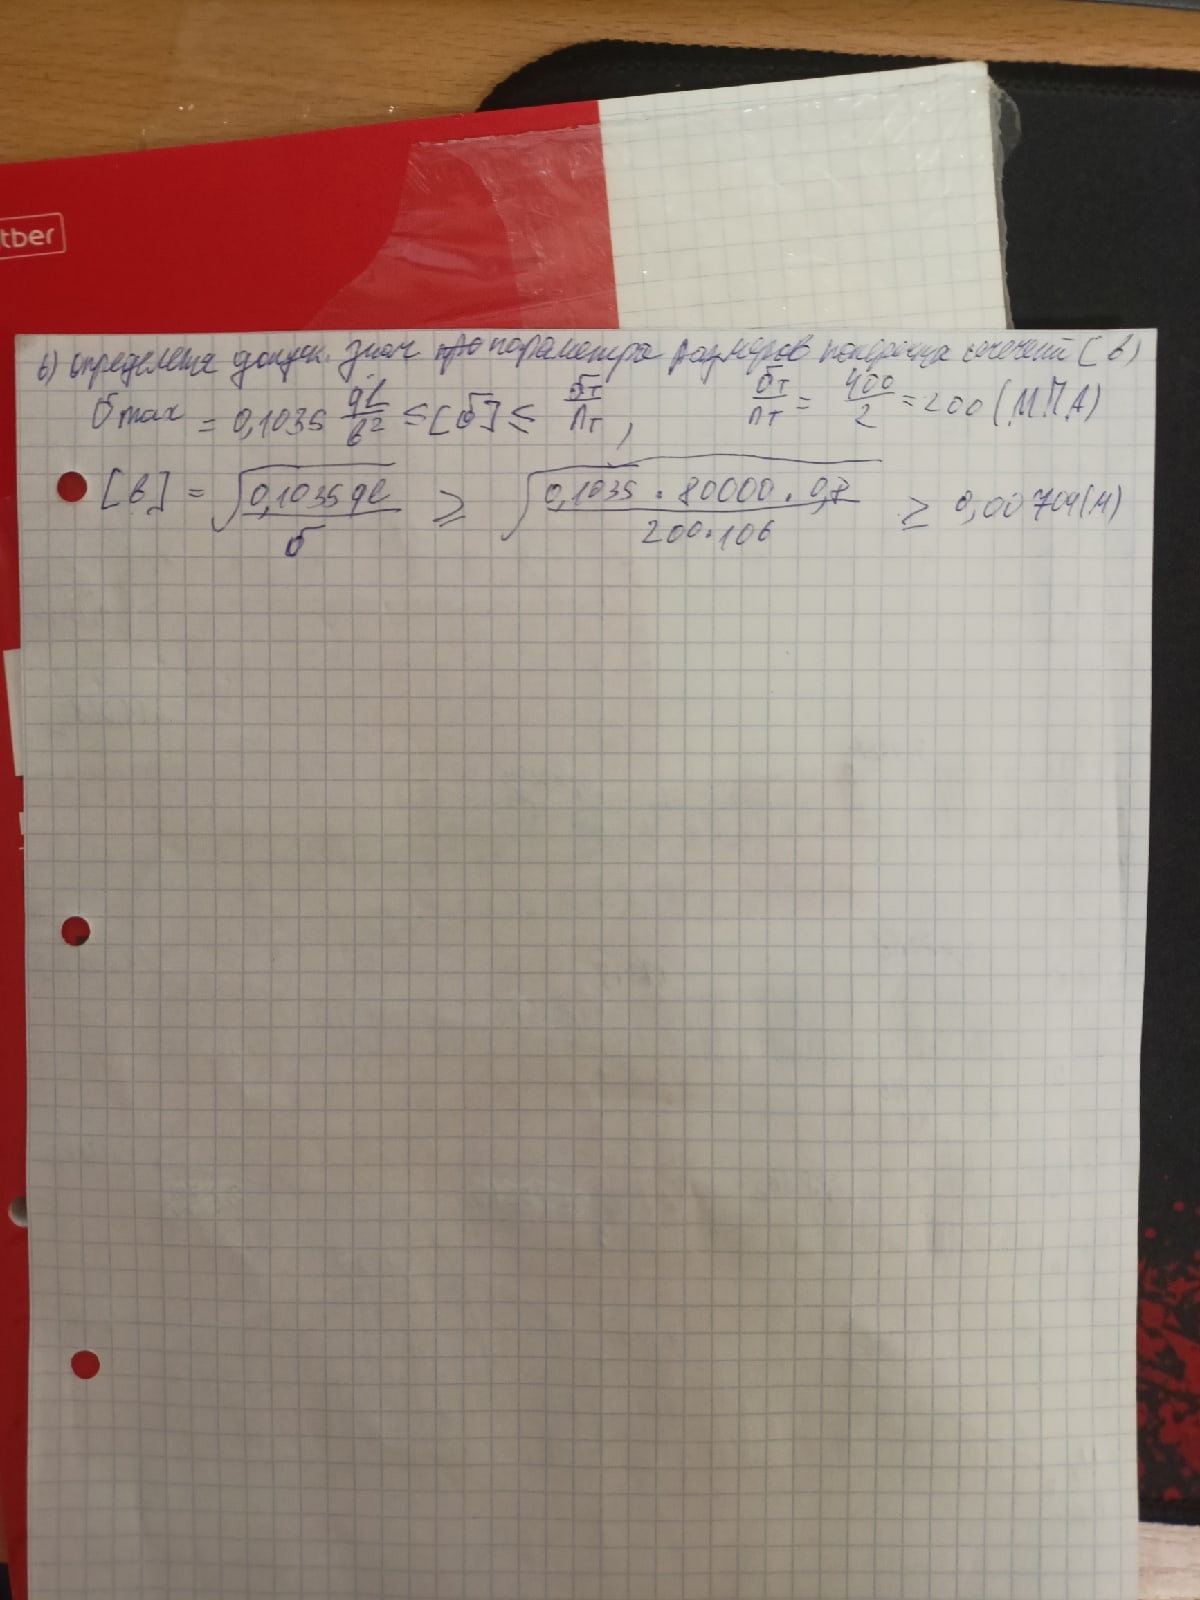 tber
в) определена допуск. знач параметра размеров поперечна сечений [в)
σmax = 0,1035 ql/в² ≤ [σ] ≤ σт/nт , σт/nт = 400/2 = 200 (МПА)
[в] = √(0,1035 ql/σ) ≥ √(0,1035 · 80000 · 0,8/200·10б) ≥ 0,00704(м)